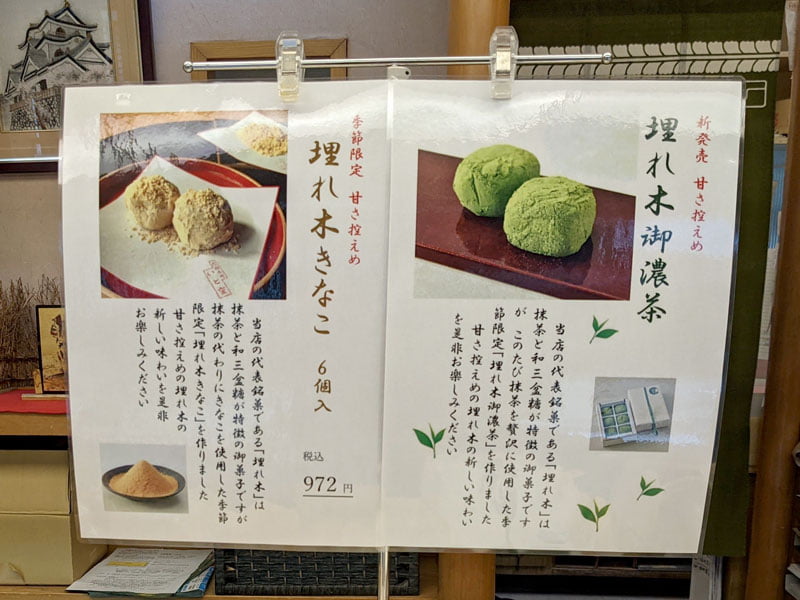 新発売 甘さ控えめ
埋れ木御濃茶
当店の代表銘菓である「埋れ木」は
抹茶と和三盆糖が特徴の御菓子です
が このたび抹茶を贅沢に使用した季
節限定「埋れ木御濃茶」を作りました
甘さ控えめの埋れ木の新しい味わい
を是非お楽しみください
季節限定 甘さ控えめ
埋れ木きなこ 6個入
税込
972円
当店の代表銘菓である「埋れ木」は
抹茶と和三盆糖が特徴の御菓子ですが
抹茶の代わりにきなこを使用した季節
限定「埋れ木きなこ」を作りました
甘さ控えめの埋れ木の
新しい味わいを是非
お楽しみください